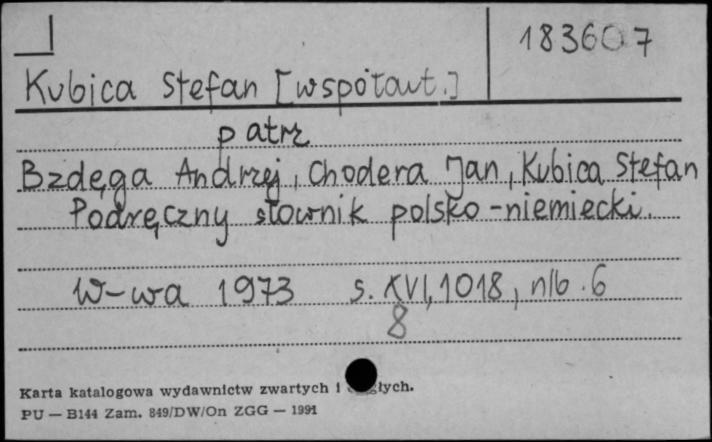 183607
Kubica Stefan [współaut.]
patrz
Bzdęga Andrzej, Chodera Jan, Kubica Stefan
Podręczny słownik polsko-niemiecki.
W-wa 1973 s. XVI, 1018, nlb. 6
8
Karta katalogowa wydawnictw zwartych i
PU — B144 Zam. 849/DW/On ZGG — 1991